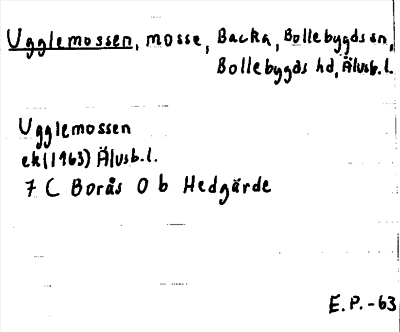 Ugglemossen, mosse, Backa, Bollebygds sn,
Bollebygds hd, Älvsb.l.
Ugglemossen
ek (1963) Älvsb.l.
7 C Borås 0 b Hedgärde
E.P.-63